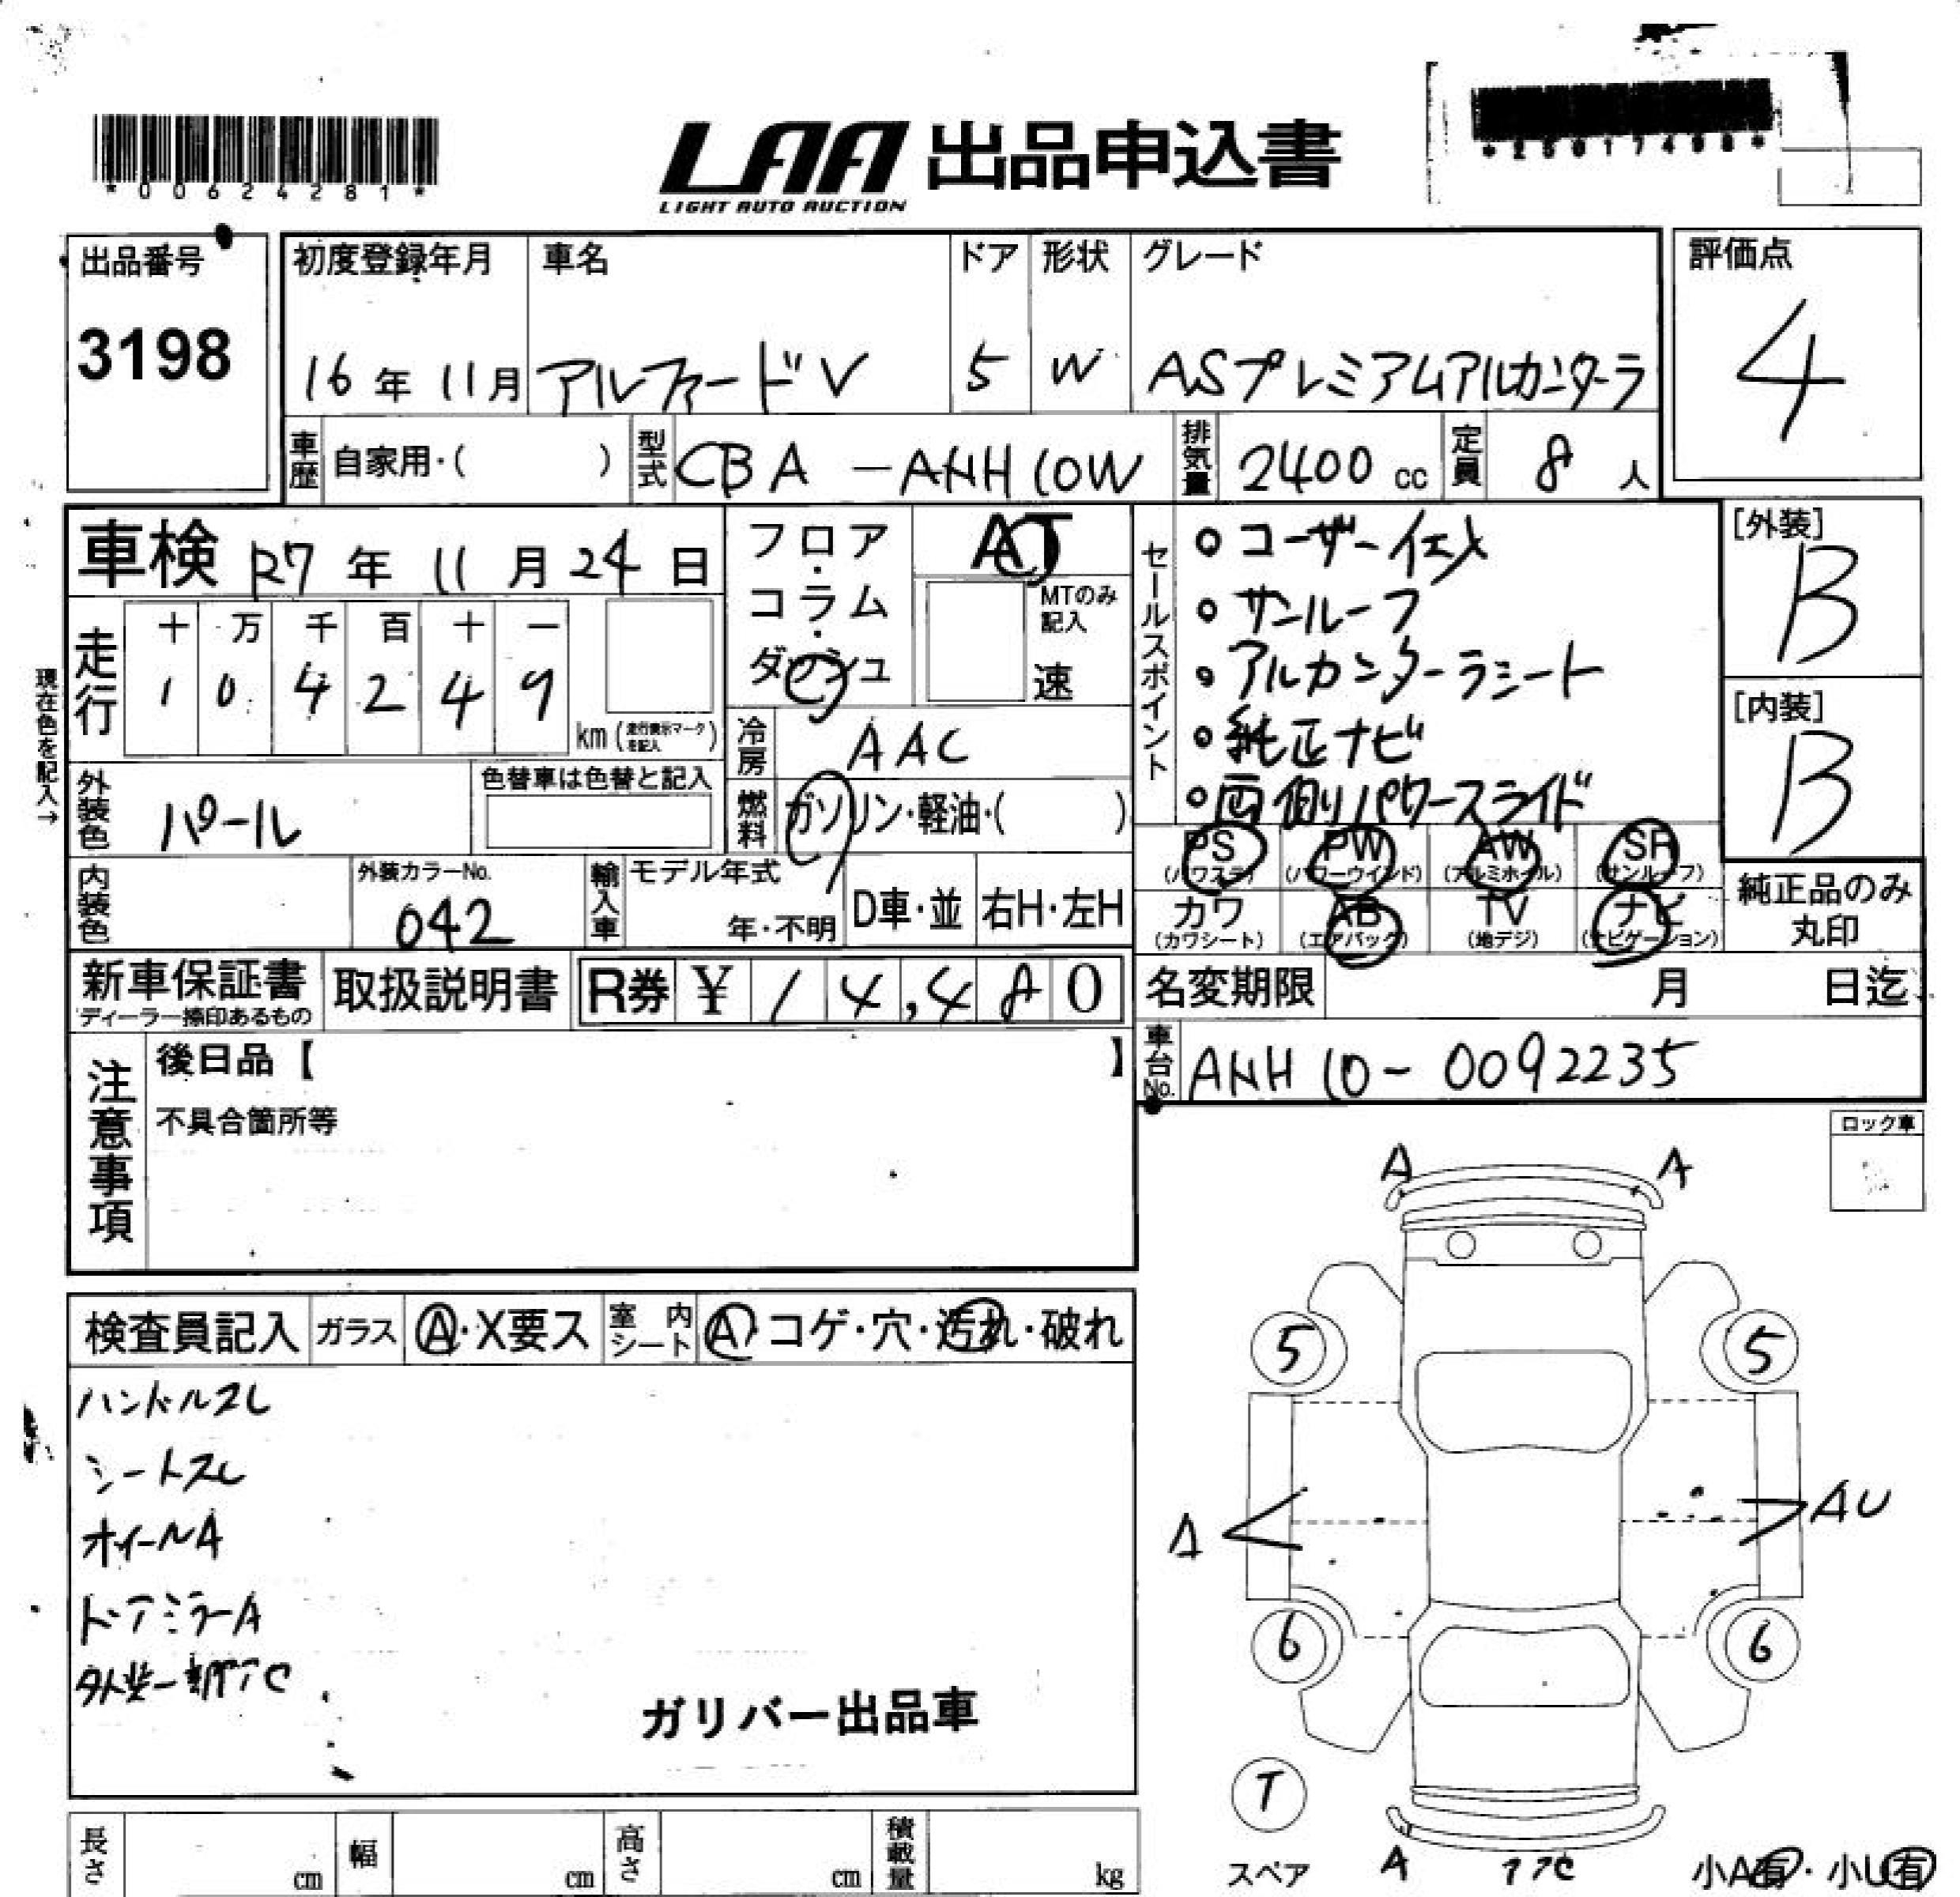 *00624281*
LAA 出品申込書
LIGHT AUTO AUCTION
出品番号
3198
初度登録年月
16年 11月
車名
アルファードV
ドア
5
形状
W
グレード
ASプレミアムアルカンターラ
評価点
4
車歴 自家用・( )
型式 CBA-ANH10W
排気量 2400 cc
定員 8 人
車検 R7年 11月 24日
フロア・コラム・ダッシュ
AT
MTのみ記入
速
走行
十 万 千 百 十 一
1 0 4 2 4 9
km(走行表示マークを記入)
現在色を記入→
冷房 AAC
外装色 パール
色替車は色替と記入
燃料 ガソリン・軽油・( )
内装色
外装カラーNo.
042
輸入車 モデル年式
年・不明
D車・並
右H・左H
セールスポイント
・ユーザー
・サンルーフ
・アルカンターラシート
・純正ナビ
・両側パワースライド
[外装]
B
[内装]
B
PS (パワステ)
PW (パワーウインド)
AW (アルミホイル)
SR (サンルーフ)
カワ (カワシート)
AB (エアバック)
TV (地デジ)
ナビ (ナビゲーション)
純正品のみ丸印
新車保証書
ディーラー捺印あるもの
取扱説明書
R券 ¥ 14,480
名変期限 月 日迄
車台No. ANH10-0092235
注意事項
後日品【 】
不具合箇所等
ロック車
検査員記入
ガラス A・X要ス
室内シート A・コゲ・穴・汚れ・破れ
ハンドルスレ
シートスレ
ホイールA
ドアミラーA
外装一部
ガリバー出品車
A A
5 5
A AU
6 6
T
スペア
A
小A有・小U有
長さ cm
幅 cm
高さ cm
積載量 kg